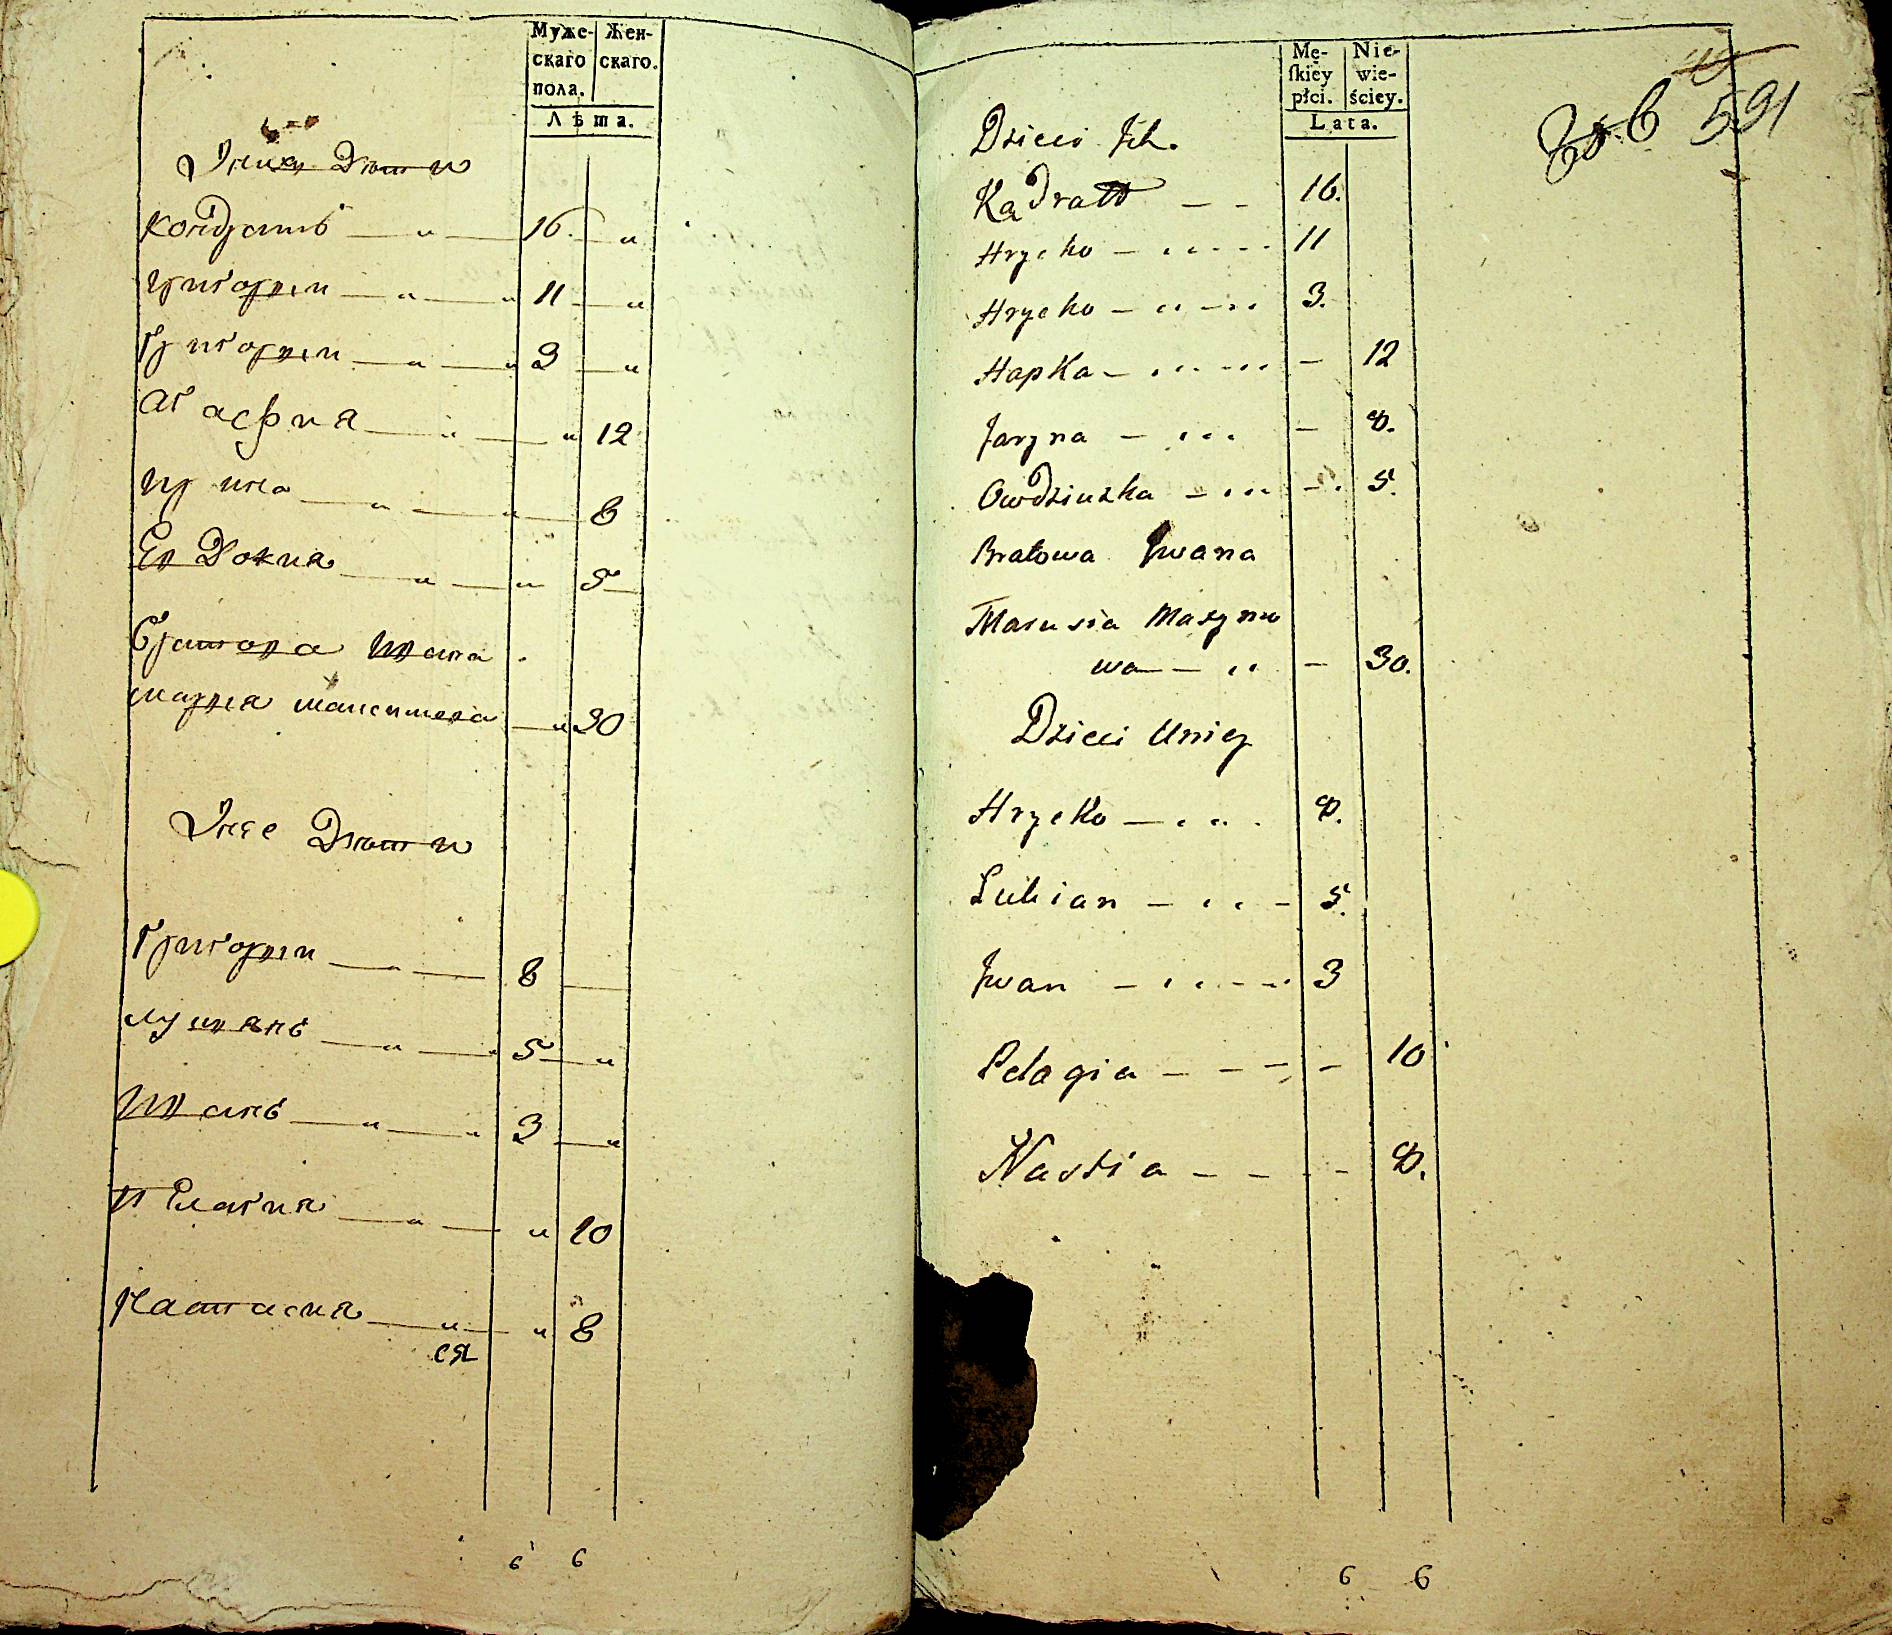 Муже- Жен-
скаго скаго.
пола.
Лѣта.
Ихъ Дѣти
Кондратъ — " — 16 — "
Григорїи — " — " 11 — "
Григорїи — " — " 3 — "
Агафия — " — " 12
Ирина — " — " — 8
Евдокия — " — " 5
Братова Ивана
Марїя Максимова — " 30
Ее Дѣти
Григорїи — " — 8 —
Лукиянъ — " — 5 — "
Иванъ — " — " 3 — "
Пелагия — " — " 10
Настасия — " — " 8
ся
6 6
Mę- Nie-
skiey wie-
płci. ściey.
Lata.
591
Dzieci Ich.
Kadratt — — 16.
Hrycko — 11
Hrycko — 3.
Hapka — — 12
Jaryna — — 8.
Owdziuszka — — 5.
Bratowa Jwana
Marusia Maxymo
wa — — 30.
Dzieci Unieÿ
Hrycko — 8.
Lukian — 5.
Jwan — 3
Pelagia — — — — 10
Nastia — — — 8.
6 6